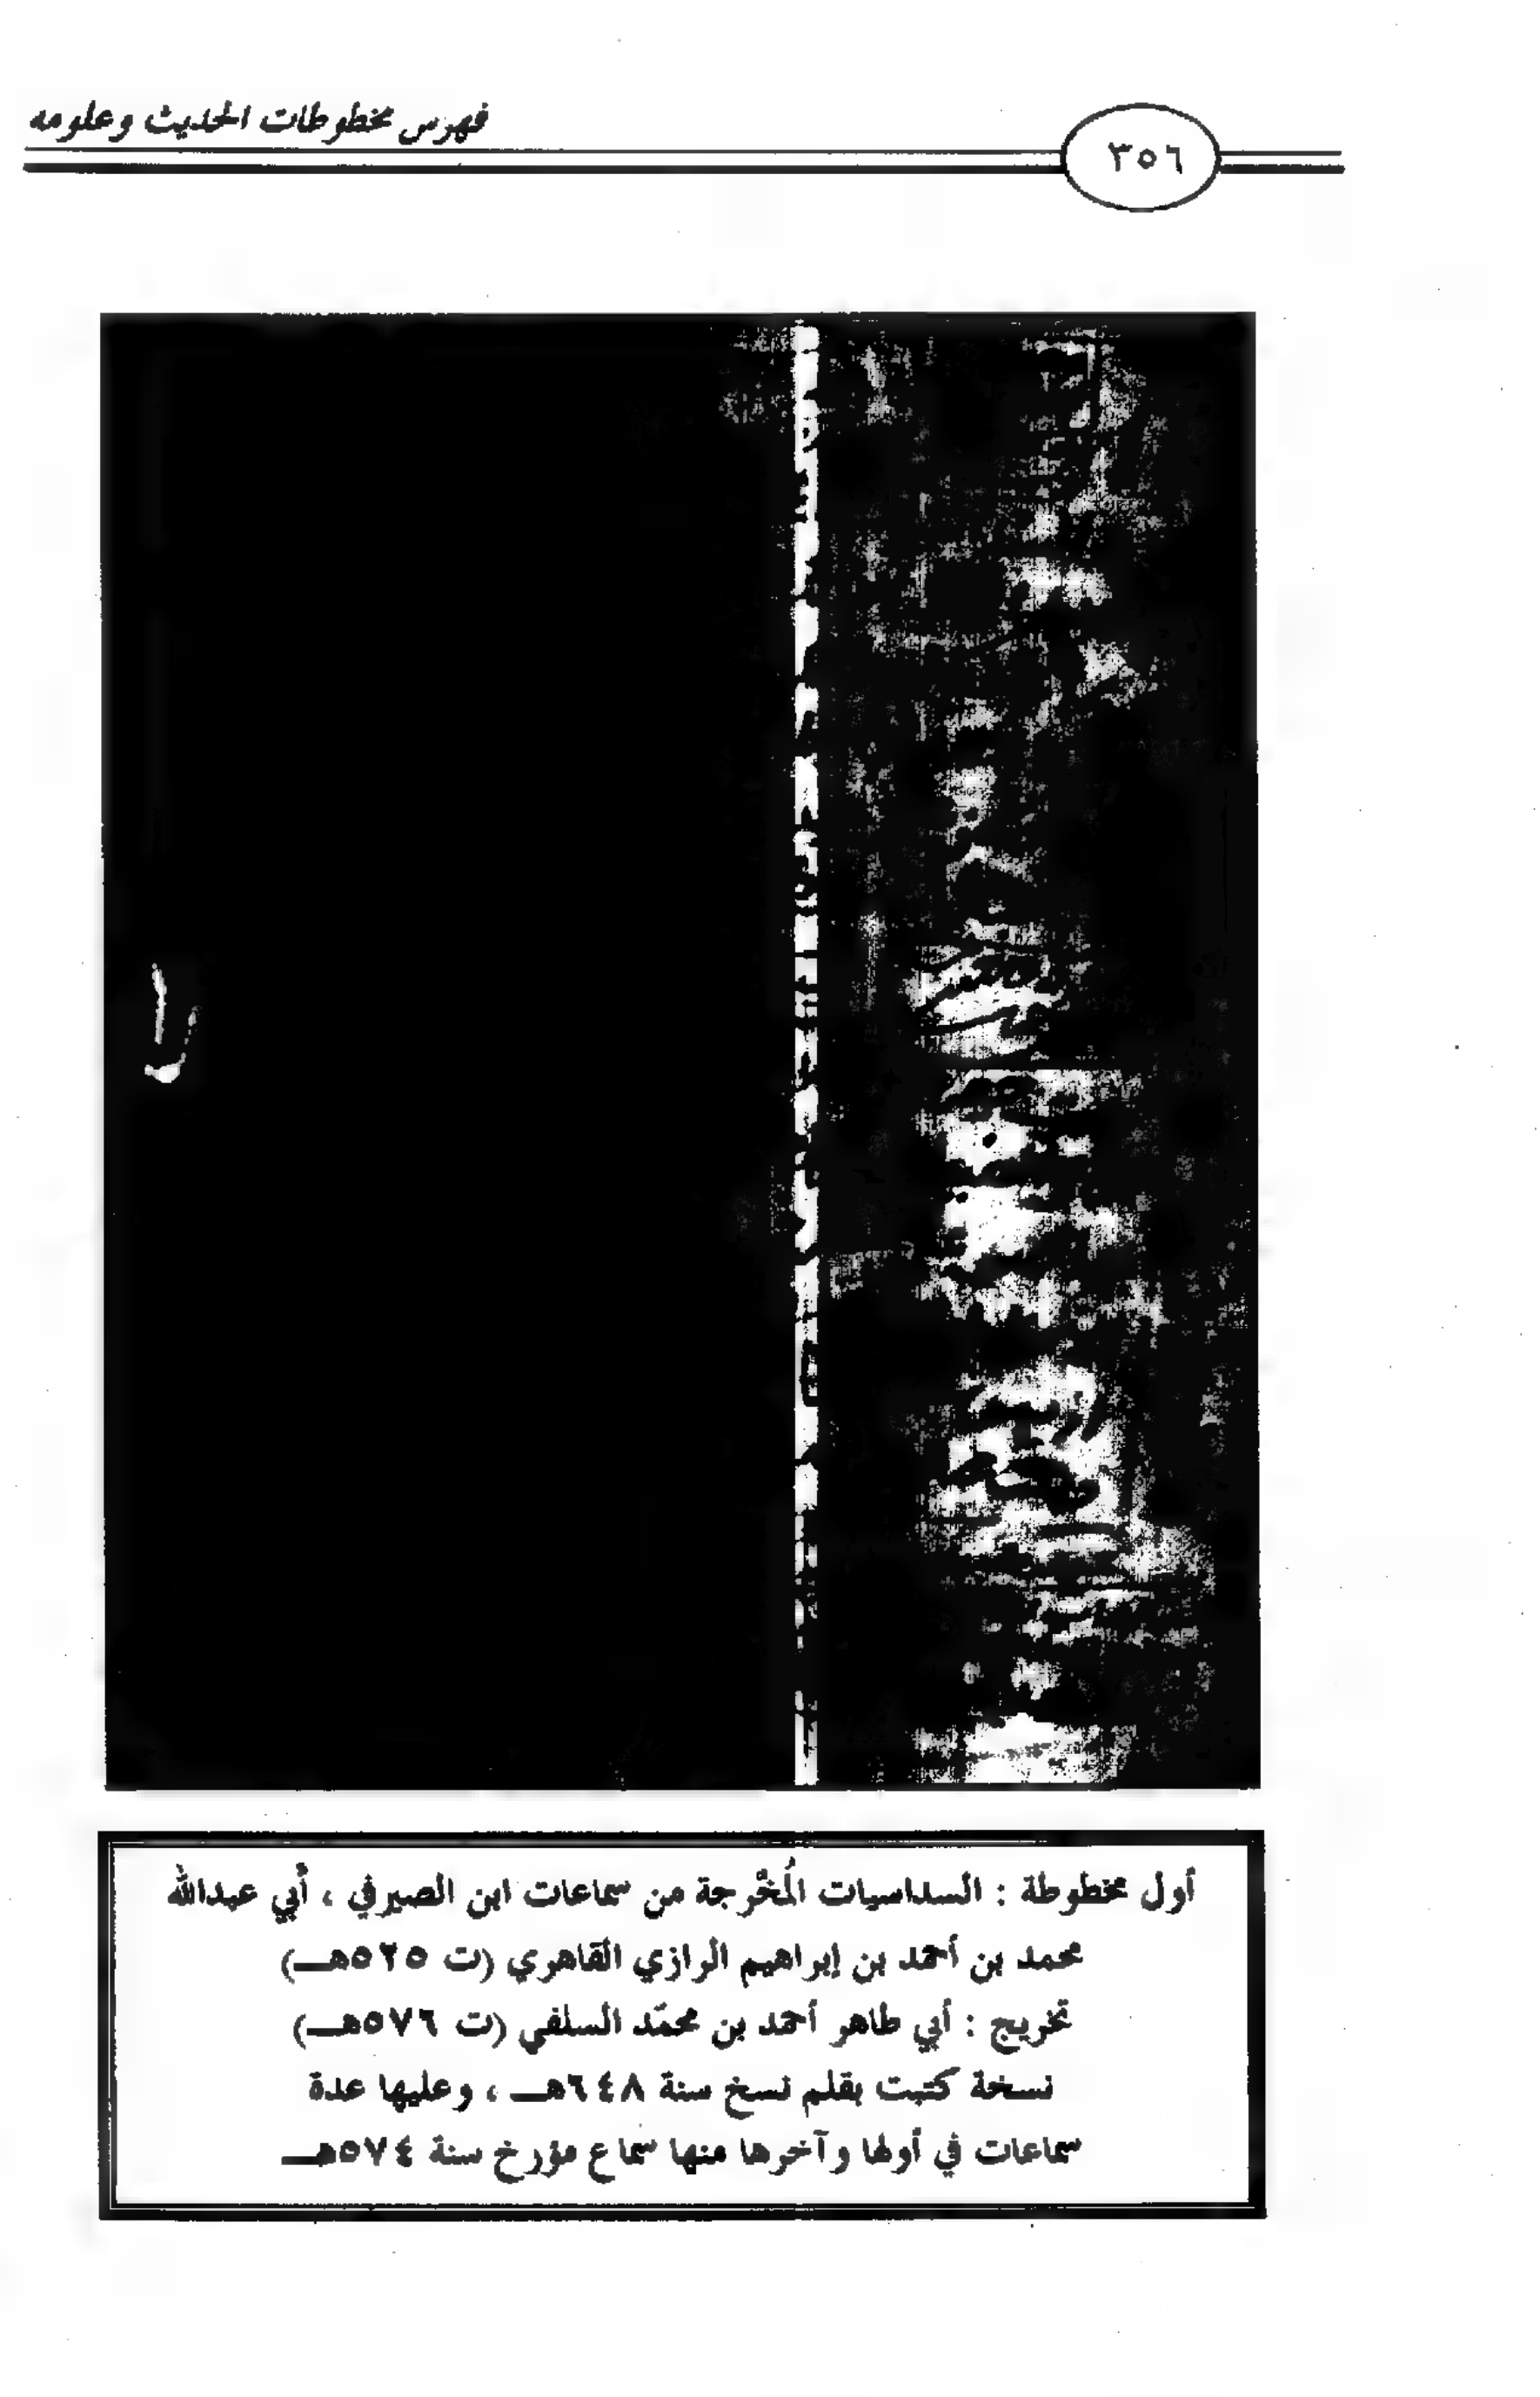 فهرس مخطوطات الحديث وعلومه
٣٥٦
أول مخطوطة : السداسيات المُخْرجة من سماعات ابن الصيرفي ، أبي عبدالله
محمد بن أحمد بن إبراهيم الرازي القاهري (ت ٥٢٥هـ)
تخريج : أبي طاهر أحمد بن محمّد السلفي (ت ٥٧٦هـ)
نسخة كتبت بقلم نسخ سنة ٦٤٨هـ ، وعليها عدة
سماعات في أولها وآخرها منها سماع مؤرخ سنة ٥٧٤هـ